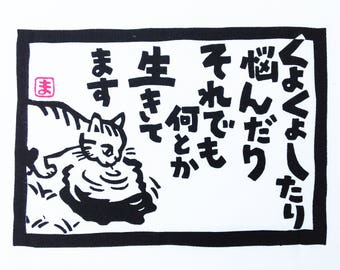 くよくよしたり
悩んだり
それでも
何とか
生きて
ます
ま